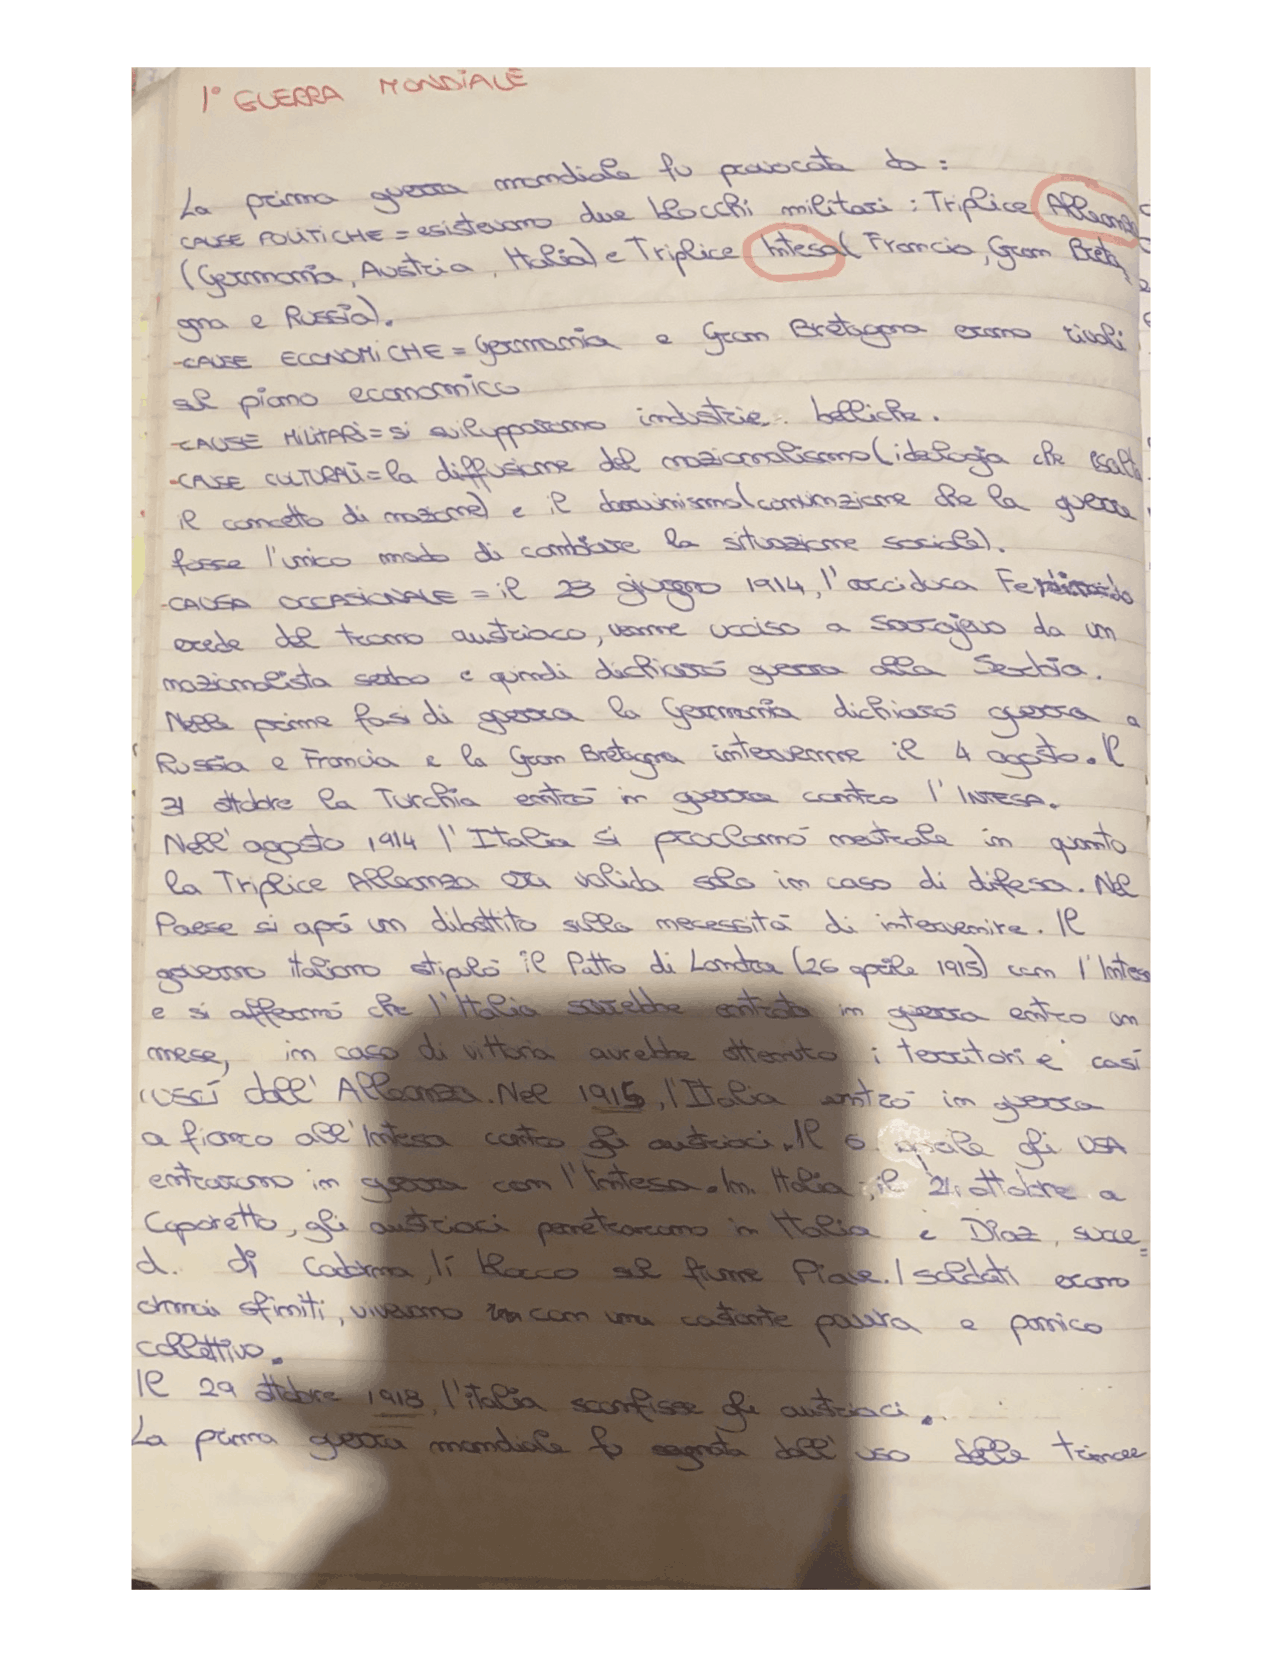 1° GUERRA MONDIALE
La prima guerra mondiale fu provocata da :
CAUSE POLITICHE = esistevano due blocchi militari : Triplice Alleanza
(Germania, Austria, Italia) e Triplice Intesa ( Francia, Gran Breta
gna e RUSSIA).
-CAUSE ECONOMICHE = Germania e Gran Bretagna erano rivali
sul piano economico
-CAUSE MILITARI = si svilupparono industrie belliche.
-CAUSE CULTURALI = la diffusione del nazionalismo (ideologia che esalta
il concetto di nazione) e il darwinismo (convinzione che la guerra
fosse l'unico modo di cambiare la situazione sociale).
-CAUSA OCCASIONALE = il 28 giugno 1914, l'arciduca Ferdinando
erede del trono austriaco, venne ucciso a Sarajevo da un
nazionalista serbo e quindi dichiarò guerra alla Serbia.
Nelle prime fasi di guerra la Germania dichiarò guerra a
Russia e Francia e la Gran Bretagna intervenne il 4 agosto. Il
31 ottobre la Turchia entrò in guerra contro l'INTESA.
Nell'agosto 1914 l'Italia si proclamò neutrale in quanto
la Triplice Alleanza era valida solo in caso di difesa. Nel
Paese si aprì un dibattito sulla necessità di intervenire. Il
governo italiano stipulò il Patto di Londra (26 aprile 1915) con l'Intesa
e si affermò che l'Italia sarebbe entrata in guerra entro un
mese, in caso di vittoria avrebbe ottenuto i territori e così
uscì dall'Alleanza. Nel 1915, l'Italia entrò in guerra
a fianco all'Intesa contro gli austriaci. Il 6 aprile gli USA
entrarono in guerra con l'Intesa. In Italia, il 24 ottobre a
Caporetto, gli austriaci penetrarono in Italia e Diaz, succe=
d. di Cadorna, li bloccò sul fiume Piave. I soldati erano
ormai sfiniti, vivevano con una costante paura e panico
collettivo.
Il 29 ottobre 1918, l'italia sconfisse gli austriaci.
La prima guerra mondiale fu segnata dall'uso delle trincee